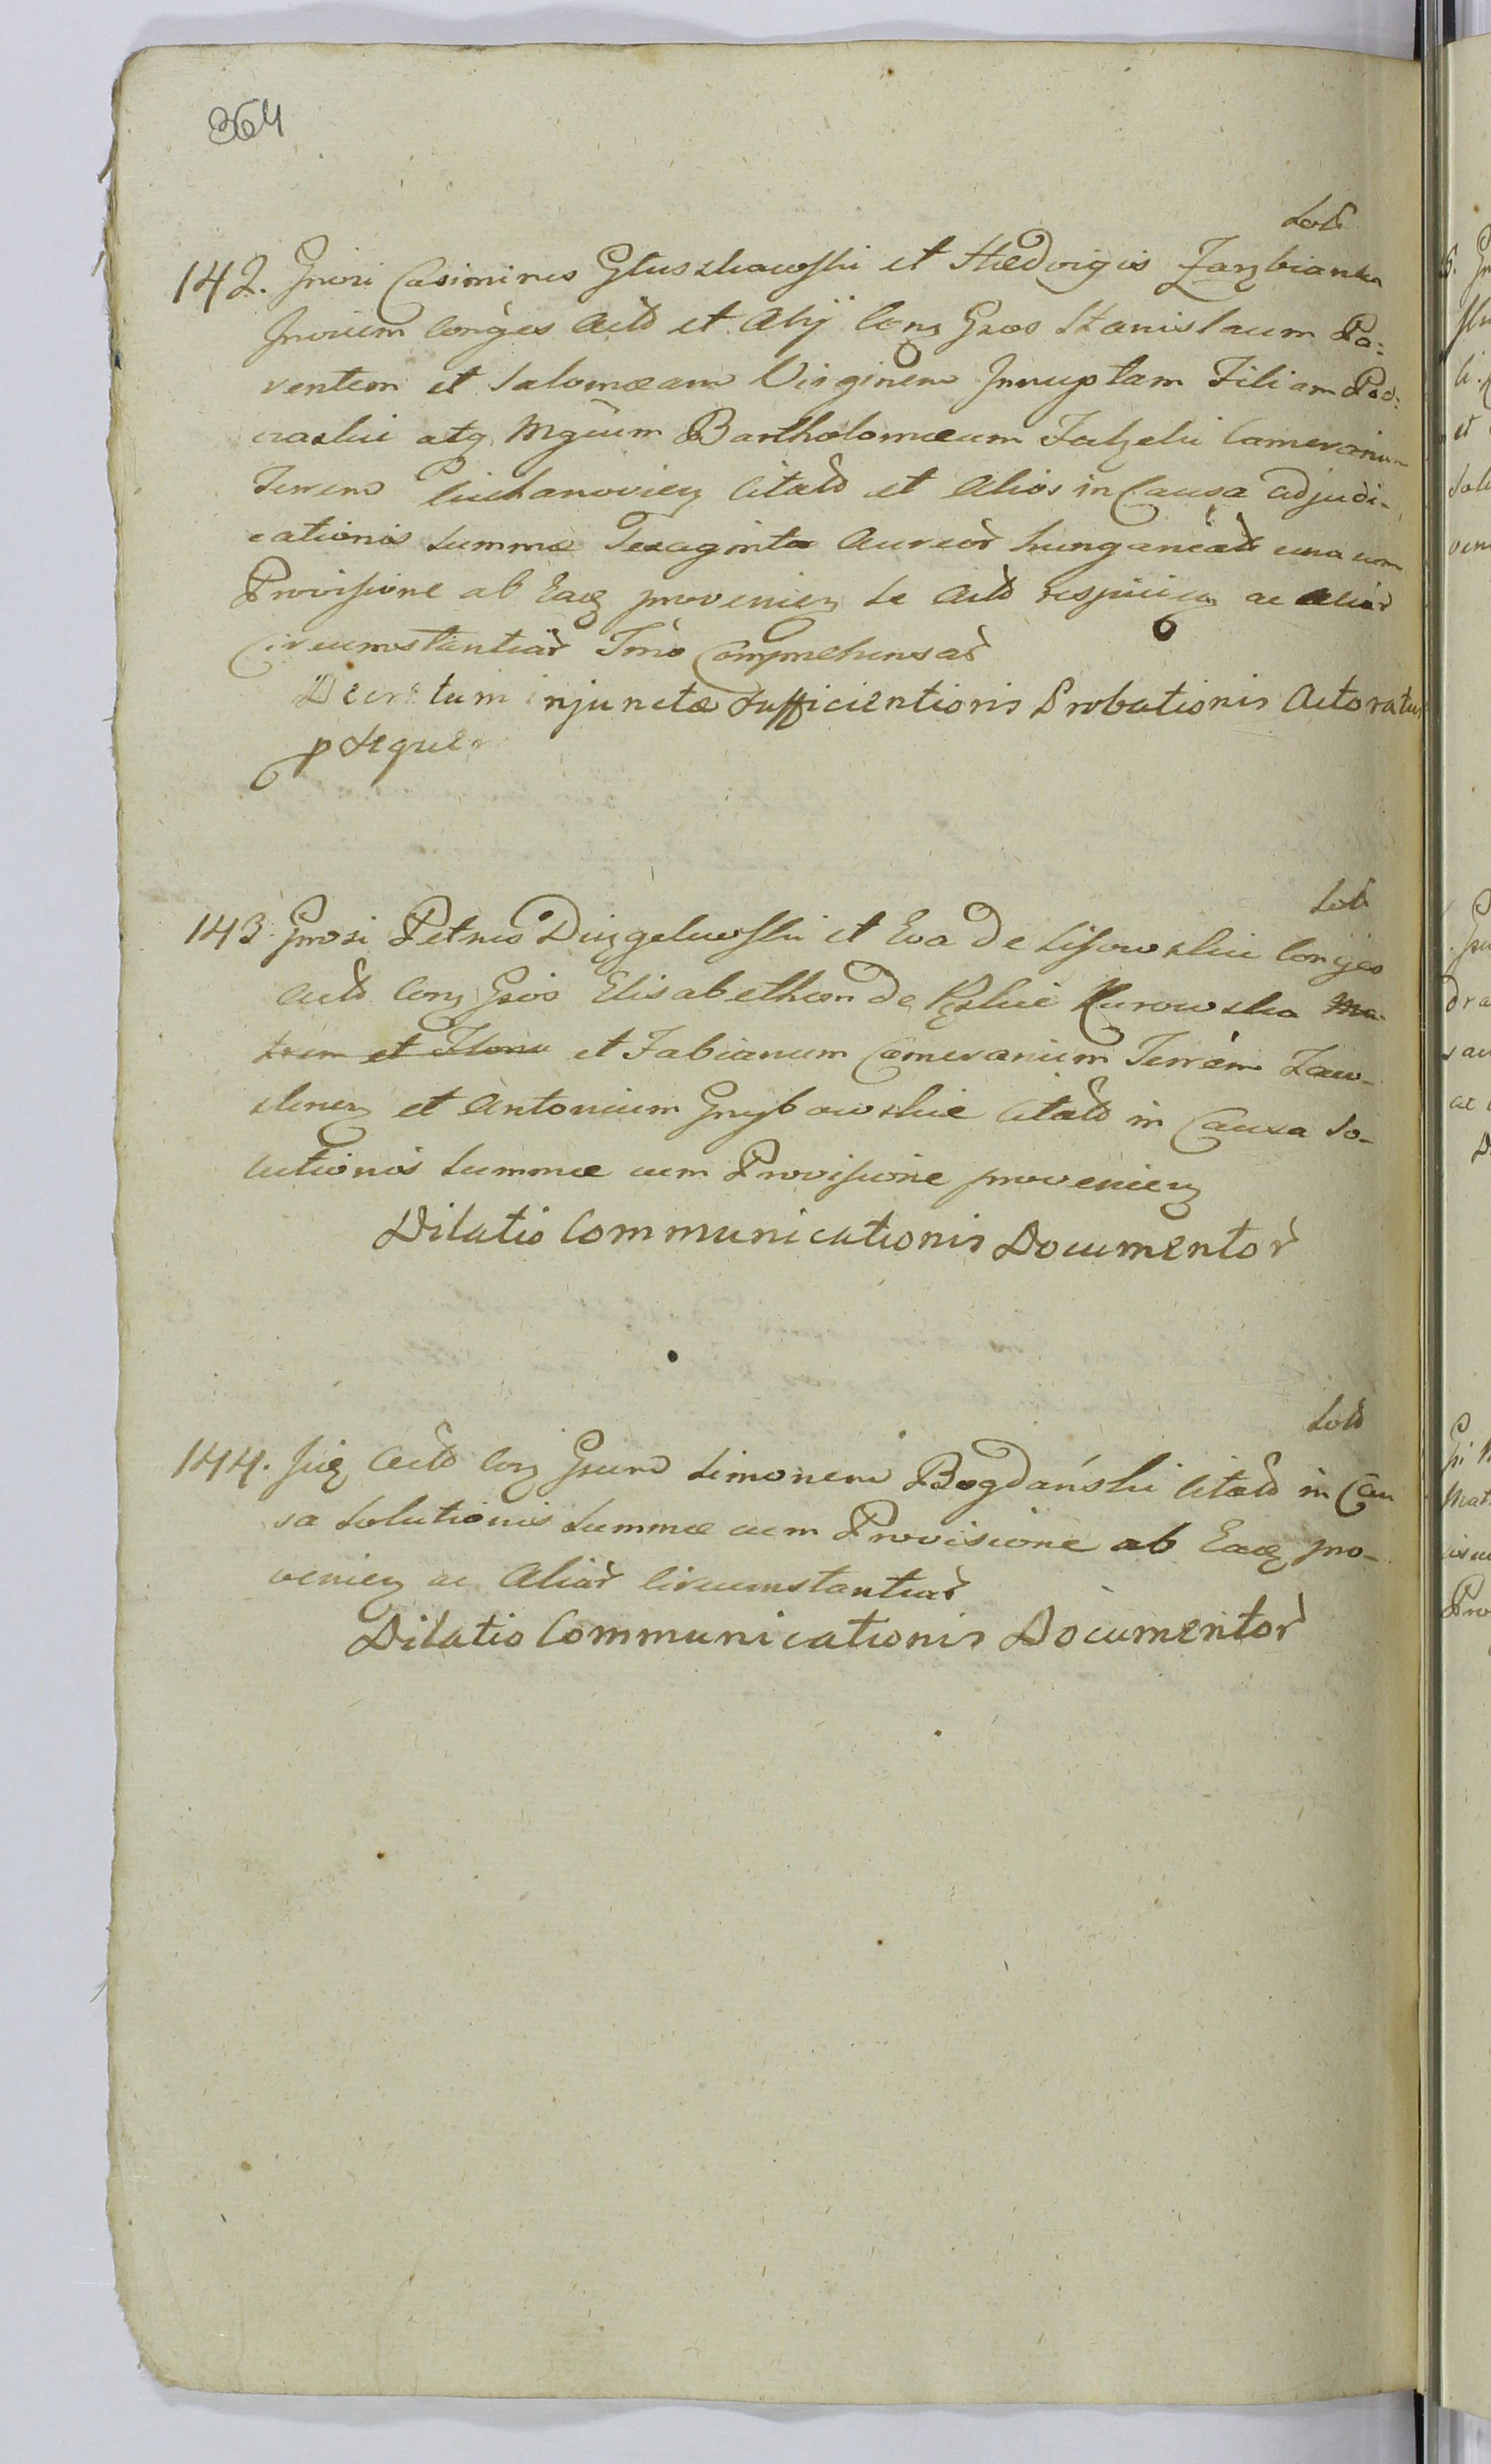 364
Solt
142. Gnosi Casimirus Głuszkowski et Hedvigis Jarzbianka
Primum Conjges Actō et Alij Conz Gsos Stanislaum Pa:
rentem et Salomeam Virginem Innuptam Filiam Pod:
atq Mgcum Bartholomæum Camerarium
Terren Ciechanovien Citatō et Alios in Causa adjudi-
cationis Summæ Sexaginta Aureor̃ hungaricalr̃ una cum
Provisione ab Eaq provenien Se Actō respicien ac Aliar̃
Circumstantiar̃ Tmo Comprehensar̃
Decretum injunctæ Sufficientioris Probationis Actoratus
p Sequen
Solt
143. Gnosi Petrus et Eva de Lisowskie Conjges
Actō Conz Gsos Elisabetham de Kurowska Ma-
trem et et Fabianum Camerarium Terren Zaw-
skrnen et Antonium Grzybowskie Citatō in Causa So-
lutionis Summæ cum Provisione provenien
Dilatio Communicationis Documentor̃
Solt
144. Actō Conz Gsum Simonem Bogdański Citatō in Cau
sa Solutionis Summæ cum Provisione ab Eaq pro-
venien ac Aliar̃ Circumstantiar̃
Dilatio Communicationis Documentor̃